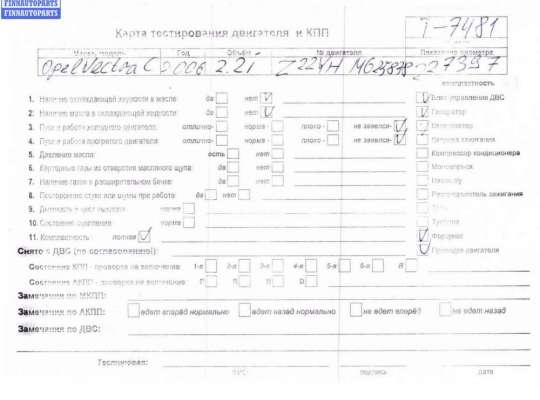 FINNAUTOPARTS
FINNAUTOPARTS
Карта тестирования двигателя и КПП
Т-7481
Марка, модель Год Объём № двигателя Показание одометра
Opel Vectra C 2006 2.2i Z22YH 227397
комплектность
1. Наличие охлаждающей жидкости в масле: да нет Блок управления ДВС
2. Наличие масла в охлаждающей жидкости: да нет Генератор
3. Пуск и работа холодного двигателя: отлично- норма - плохо - не завелся-
4. Пуск и работа прогретого двигателя: отлично- норма - плохо - не завелся- Катушка зажигания
5. Давление масла: есть нет Компрессор кондиционера
6. Картерные газы из отверстия масляного щупа: да нет
7. Наличие газов в расширительном бачке: да нет
8. Посторонние стуки или шумы при работе: да нет Распределитель зажигания
9. Дымность и цвет выхлопа: норма
10. Состояние сцепления: норма Турбина
11. Комплектность: полная Форсунки
Снято с ДВС (по согласованию): Проводка двигателя
Состояние КПП - проверка на включение: 1-я 2-я 3-я 4-я 5-я 6-я R
Состояние АКПП - проверка на включение: P R N D
Замечания по МКПП:
Замечания по АКПП: едет вперёд нормально едет назад нормально не едет вперёд не едет назад
Замечания по ДВС:
Тестировал:
подпись дата